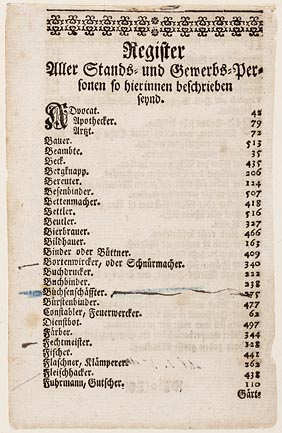 Register
Aller Stands- und Gewerbs-Per-
sonen so hierinnen beschrieben
seynd.
Advocat. 42
Apothecker. 79
Artzt. 72
Bauer. 513
Beambte. 35
Beck. 435
Bergknapp. 206
Bereuter. 124
Besenbinder. 507
Bettenmacher. 418
Bettler. 516
Beutler. 327
Bierbrauer. 466
Bildhauer. 163
Binder oder Büttner. 409
Bortenwircker, oder Schnürmacher. 340
Buchdrucker. 222
Buchbinder. 238
Büchsenschäffter. 275
Bürstenbinder. 477
Constabler, Feuerwercker. 62
Dienstbot. 497
Färber. 344
Fechtmeister. 128
Fischer. 441
Flaschner, Klämperer. 262
Fleischhacker. 438
Fuhrmann, Gutscher. 110
Gärt-